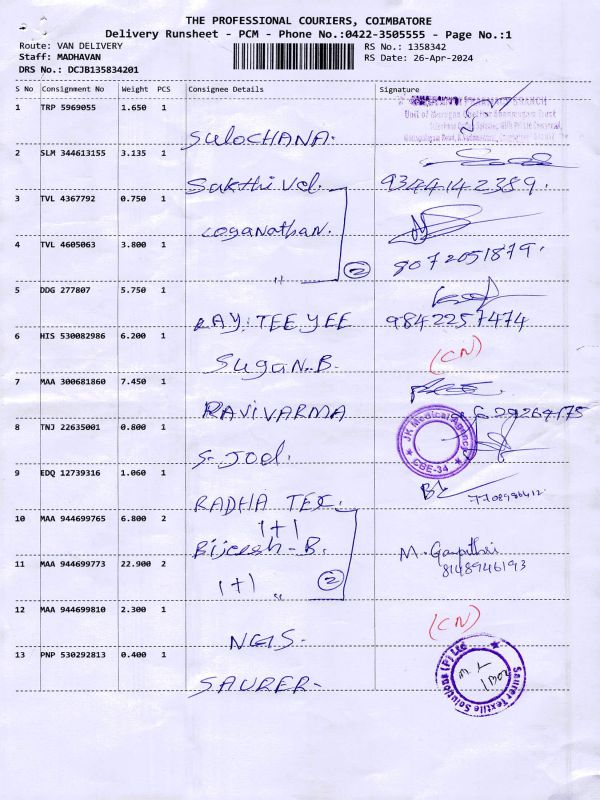 THE PROFESSIONAL COURIERS, COIMBATORE
Delivery Runsheet - PCM - Phone No.:0422-3505555 - Page No.:1
Route: VAN DELIVERY
Staff: MADHAVAN
DRS No.: DCJB135834201
RS No.: 1358342
RS Date: 26-Apr-2024
S No Consignment No Weight PCS Consignee Details Signature
1 TRP 5969055 1.650 1
SULOCHANA.
2 SLM 344613155 3.135 1
Sakthi Vel. 9344142389.
3 TVL 4367792 0.750 1
Loganathan.
4 TVL 4605063 3.800 1
8072051879.
" 2
5 DDG 277807 5.750 1
RAY. TEE YEE 9842257474
6 HIS 530082986 6.200 1
Sugan.B. (CN)
7 MAA 300681860 7.450 1
RAVIVARMA
8 TNJ 22635001 0.800 1
JK Medical Agency
CBE-34
S. Joel.
9 EDQ 12739316 1.060 1
RADHA TEX. 7708986412
10 MAA 944699765 6.800 2
1+1
Bijeesh-B.
11 MAA 944699773 22.900 2
M. Ganpithri
8148946193
1+1 " 2
12 MAA 944699810 2.300 1
NGIS. (CN)
13 PNP 530292813 0.400 1
SAURER-
Saurer Textile Solutions (P) Ltd